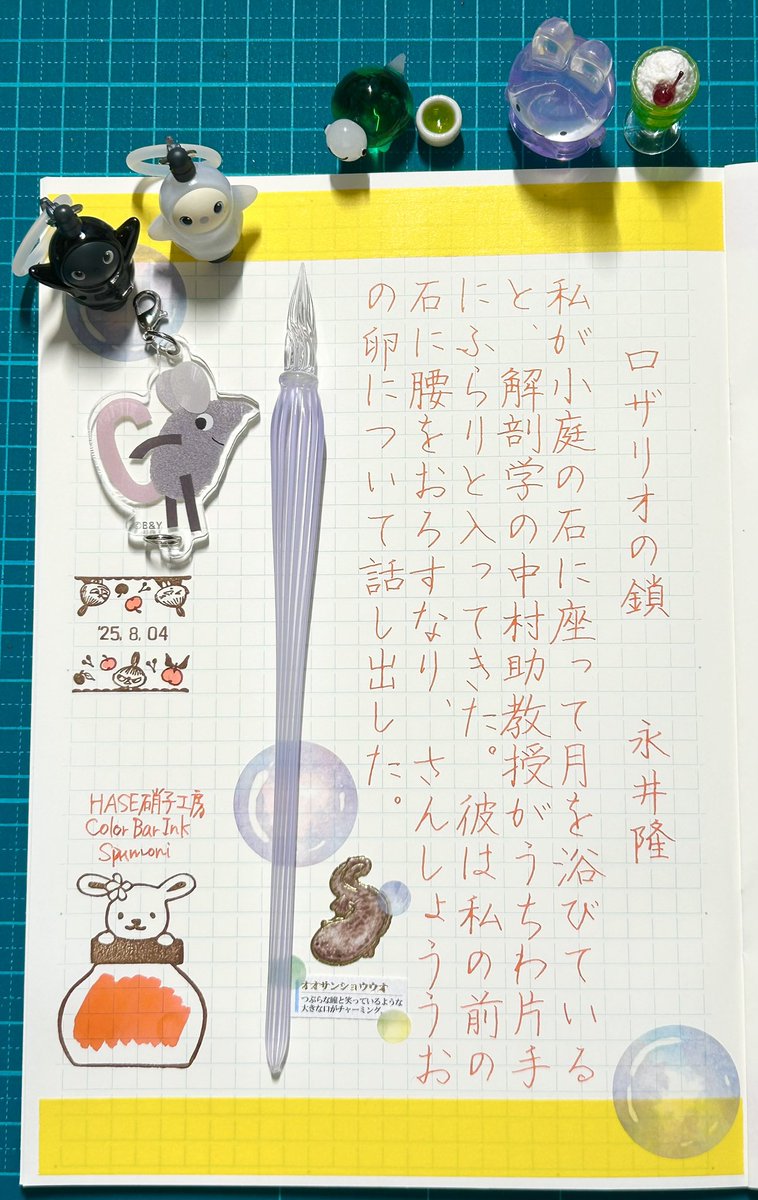 ロザリオの鎖　永井隆
私が小庭の石に座って月を浴びている
と、解剖学の中村助教授がうちわ片手
にふらりと入ってきた。彼は私の前の
石に腰をおろすなり、さんしょううお
の卵について話し出した。
©B&Y
'25.8.04
HASE硝子工房
Color Bar Ink
Spumoni
オオサンショウウオ
つぶらな瞳と笑っているような
大きな口がチャーミング